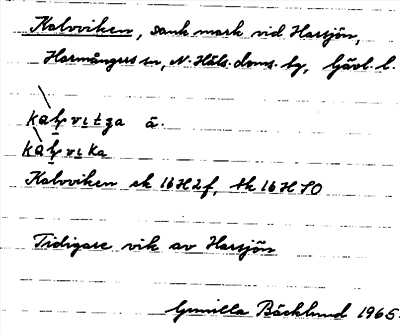 Kalvviken, sank mark vid Harsjön,
Harmångers sn, N. Häls. doms. bg, Gävl. l.
kaḷvıtga ä.
kaḷvıka
Kalvviken ek 16H2f, tk 16H SO
Tidigare vik av Harsjön
Gunilla Bäcklund 1965.